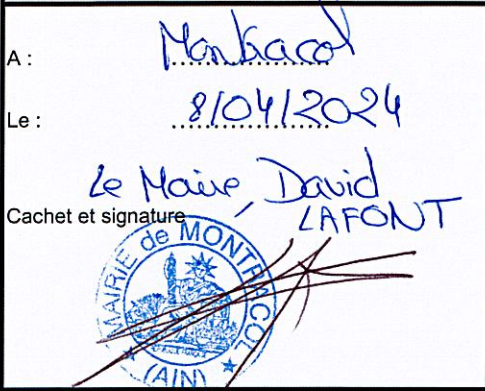 A : Montracol
Le : 8/04/2024
Le Maire, David
LAFONT
Cachet et signature
MAIRIE de MONTRACOL
(AIN)